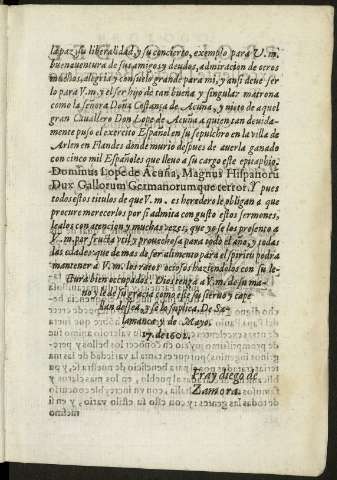 la paz, su liberalidad, y su concierto, exemplo para V.m.
buenaventura de sus amigos y deudos, admiracion de otros
muchos, alegria y consuelo grande para mi, y ansi deue ser
lo para V.m. y el ser hijo de tan buena y singular matrona
como la señora Doña Costança de Acuña, y nieto de aquel
gran Cauallero Don Lope de Acuña a quien tan deuida-
mente puso el exercito Español en su sepulchro en la villa de
Arlen en Flandes donde murio despues de auerla ganado
con cinco mil Españoles que lleuo a su cargo este epitaphio.
Dominus Lope de Acuña, Magnus Hispanorū
Dux Gallorum Germanorumque terror. Y pues
todos estos titulos de que V.m. es heredero le obligan a que
procure merecerlos por si admita con gusto estos sermones,
lealos con atencion y muchas vezes, que yo se los presento a
V.m. por fructa vtil, y prouechosa para todo el año, y todas
las edades que de mas de ser alimento para el spiritu podra
mantener à V.m. los ratos ociosos haziendolos con su le-
ctura bien ocupados. Dios tenga a V.m. de su ma-
no y le de su gracia como este su sieruo y cape
llan dessea, y se lo suplica, De Sa-
lamanca y de Mayo.
17. de 1602.
Fray diego de
Zamora.